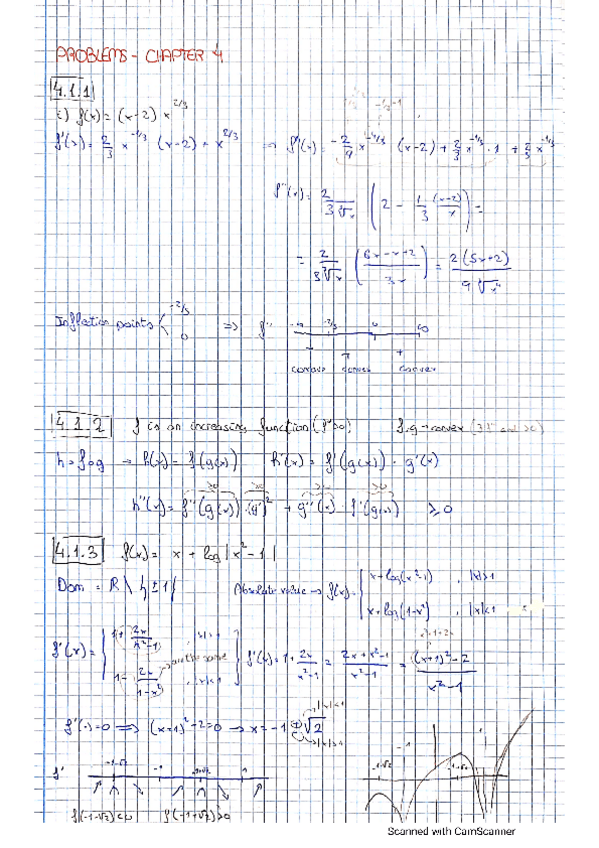 PROBLEMS - CHAPTER 4
4.1.1
c) f(x) = (x-2) x^{2/3}
f'(x) = 2/3 x^{-1/3} (x-2) + x^{2/3} ⇒ f''(x) = -2/9 x^{-4/3} (x-2) + 2/3 x^{-1/3} · 1 + 2/3 x^{-1/3}
f''(x) = 2/(3∛x) (2 - 1/3 (x-2)/x) =
= 2/(3∛x) (6x-x+2 / 3x) = 2(5x+2) / 9∛x⁴
Inflection points -2/5 0 ⇒ f''
4.1.2 f is an increasing function (f'≥0) f,g → convex
h = f∘g → h(x) = f(g(x)) h'(x) = f'(g(x)) · g'(x)
h''(x) = f''(g(x)) · (g')² + g''(x) · f'(g(x)) ≥ 0
4.1.3 f(x) = x + log |x²-1|
Dom = R \ {±1} Absolute value → f(x) = { x + log(x²-1) , |x|>1
x + log(1-x²) , |x|<1
f'(x) = { 1+ 2x/(x²-1) , |x|>1
1- 2x/(1-x²) , |x|<1 } f'(x) = 1 + 2x/(x²-1) = (2x+x²-1)/(x²-1) = ((x+1)²-2)/(x²-1)
f'(x)=0 ⇒ (x+1)²-2=0 → x = -1 ± √2
f' -1-√2 -1 -1+√2 1
f(-1-√2)<0 f(-1+√2)>0
Scanned with CamScanner